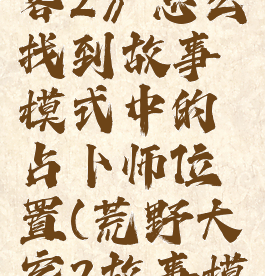 客2》怎么
找到故事
模式中的
占卜师位
置(荒野大
客2故事模